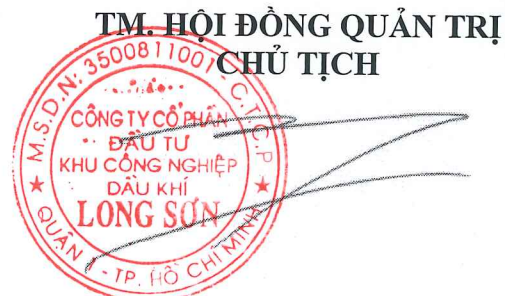 TM. HỘI ĐỒNG QUẢN TRỊ
CHỦ TỊCH
M.S.D.N: 3500811001 - C.T.C.P
CÔNG TY CỔ PHẦN
ĐẦU TƯ
KHU CÔNG NGHIỆP
DẦU KHÍ
LONG SƠN
QUẬN 1 - TP. HỒ CHÍ MINH